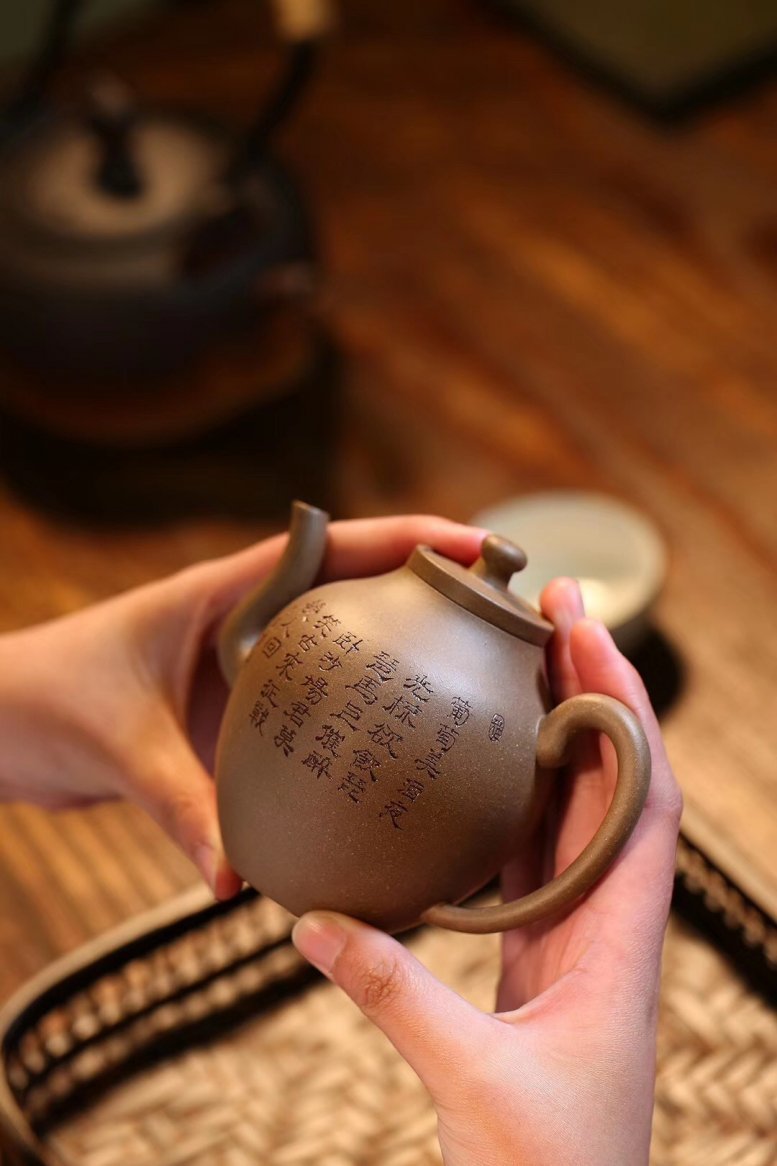 葡萄美酒夜
光桮欲飲琵
琶馬上催醉
卧沙場君莫
笑古來征戰
幾人回